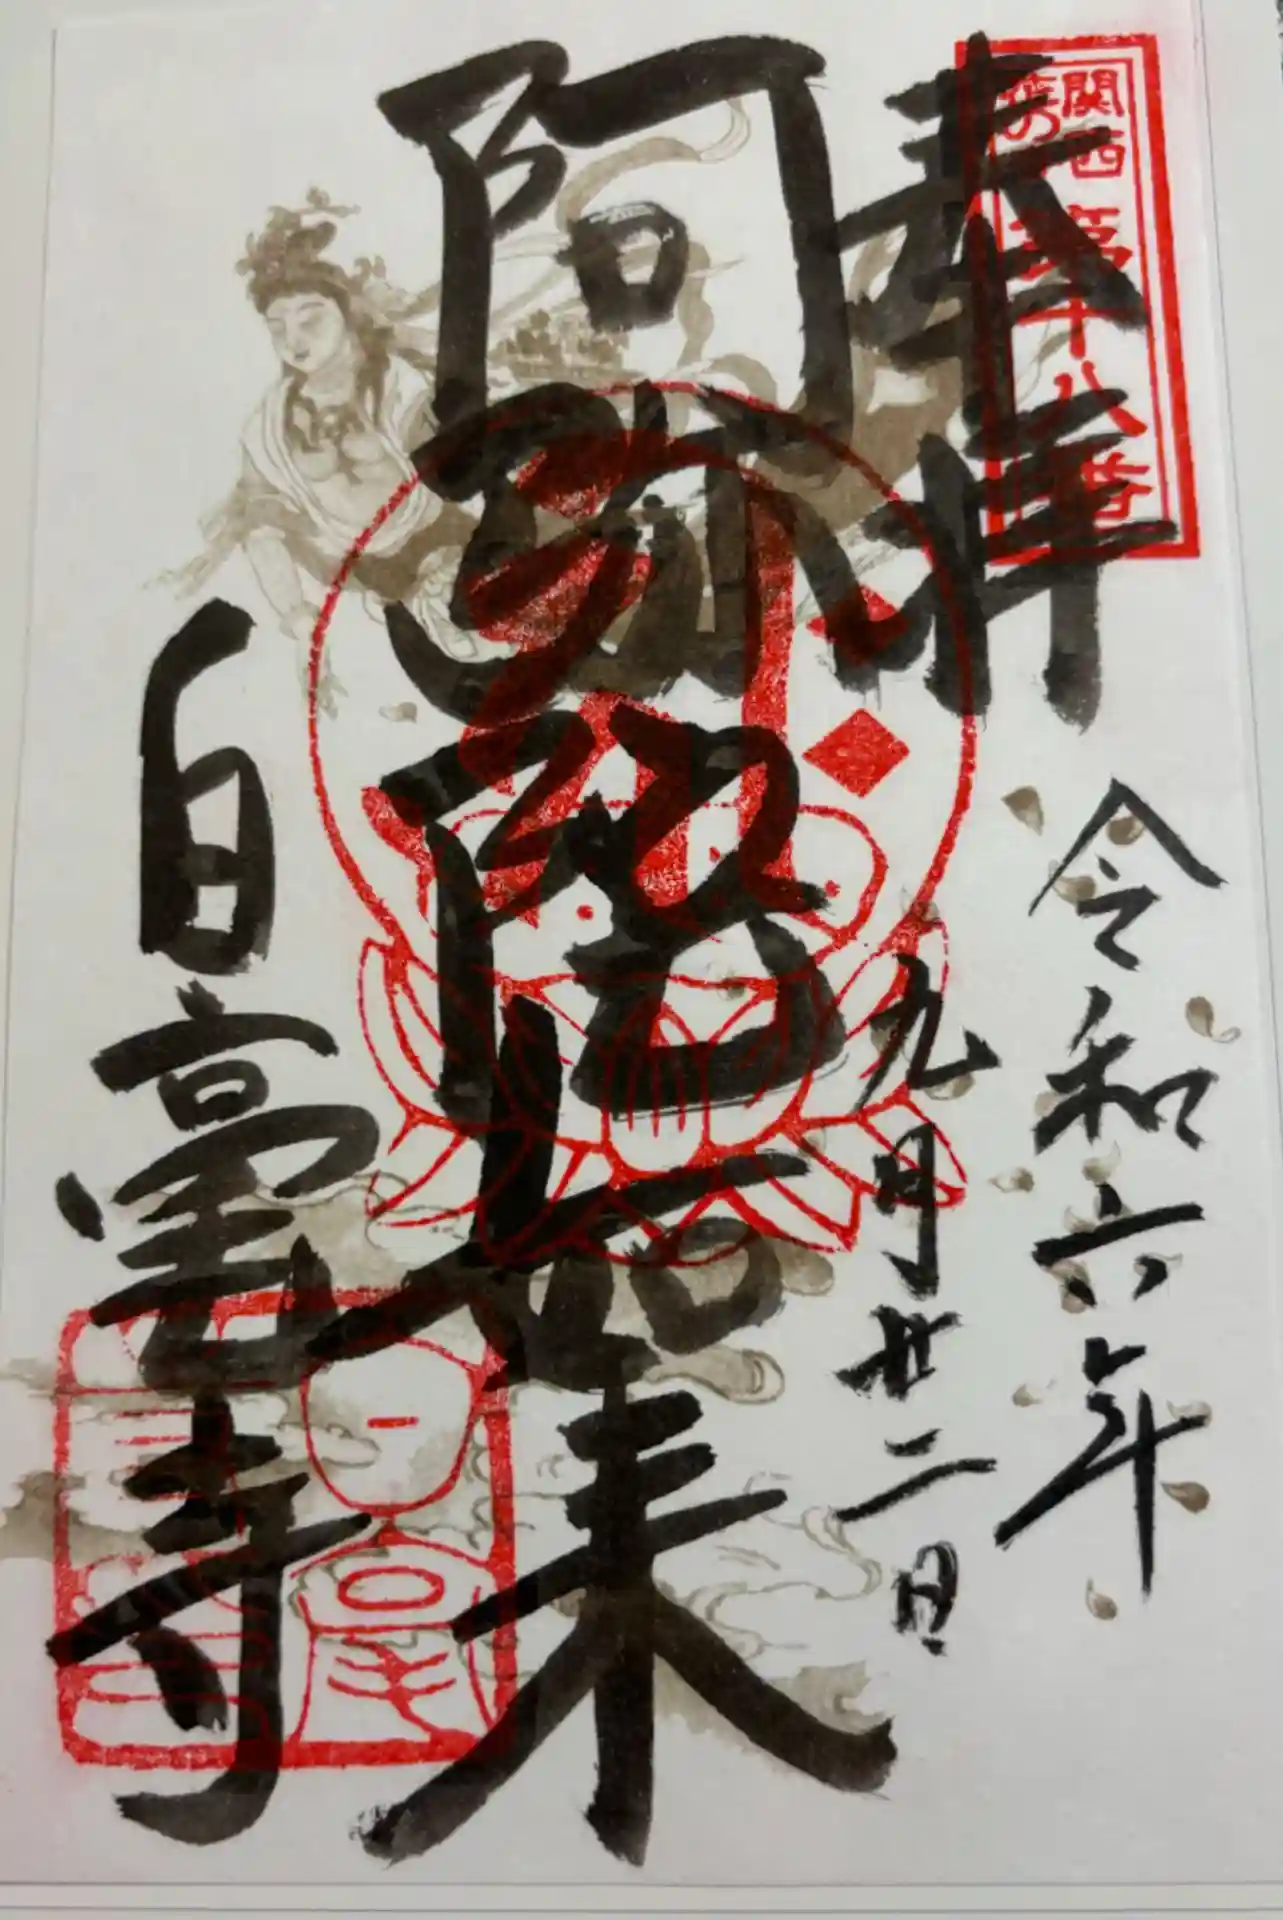 関西
花の寺
第十八番
奉拝
令和六年
九月廿二日
阿弥陀如来
白毫寺